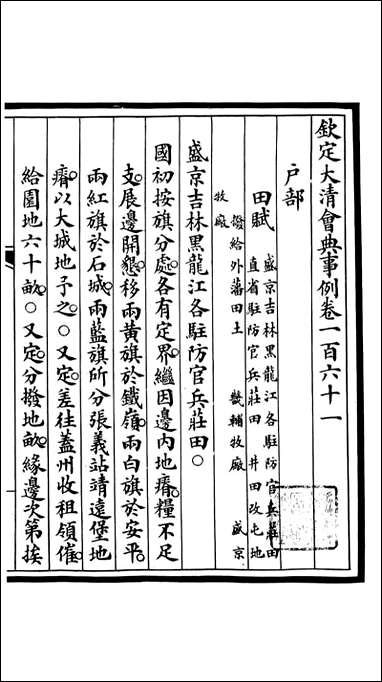 欽定大清會典事例卷一百六十一
户部
田賦
盛京吉林黑龍江各駐防官兵莊田
直省駐防官兵莊田 井田改屯地
撥給外藩田土 畿輔牧廠 盛京
牧廠
盛京吉林黑龍江各駐防官兵莊田○
國初按旗分處各有定界繼因邊内地瘠糧不足
支展邊開懇移兩黃旗於鐵嶺兩白旗於安平
兩紅旗於石城兩藍旗所分張義站靖遠堡地
瘠以大城地予之○又定差往蓋州收租領催
給園地六十畝○又定分撥地畝緣邊次第挨